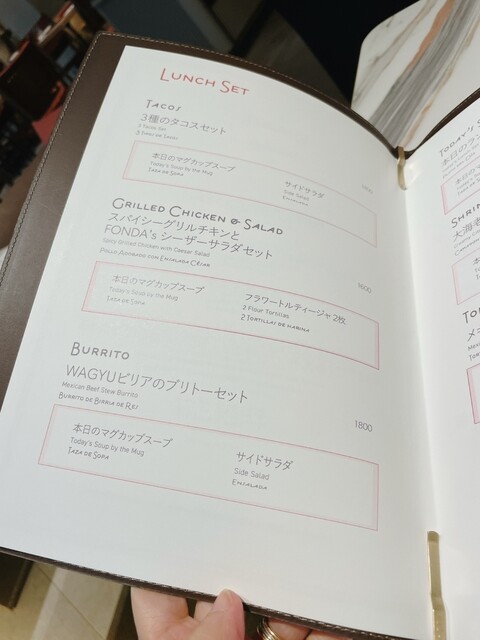 LUNCH SET
TACOS
3種のタコスセット
3 TIPOS DE TACOS
本日のマグカップスープ
Today's Soup by the Mug
TAZA DE SOPA
サイドサラダ
Side Salad
ENSALADA
GRILLED CHICKEN & SALAD
スパイシーグリルチキンと
FONDA's シーザーサラダセット
Spicy Grilled Chicken with Caesar Salad
POLLO ADOBADO CON ENSALADA CÉSAR
1600
本日のマグカップスープ
Today's Soup by the Mug
TAZA DE SOPA
フラワートルティージャ2枚
2 Flour Tortillas
2 TORTILLAS DE HARINA
BURRITO
WAGYUビリアのブリトーセット
Mexican Beef Stew Burrito
BURRITO DE BIRRIA DE RES
1800
本日のマグカップスープ
Today's Soup by the Mug
TAZA DE SOPA
サイドサラダ
Side Salad
ENSALADA
TODAY'S
本日の
SHRIM
大海老